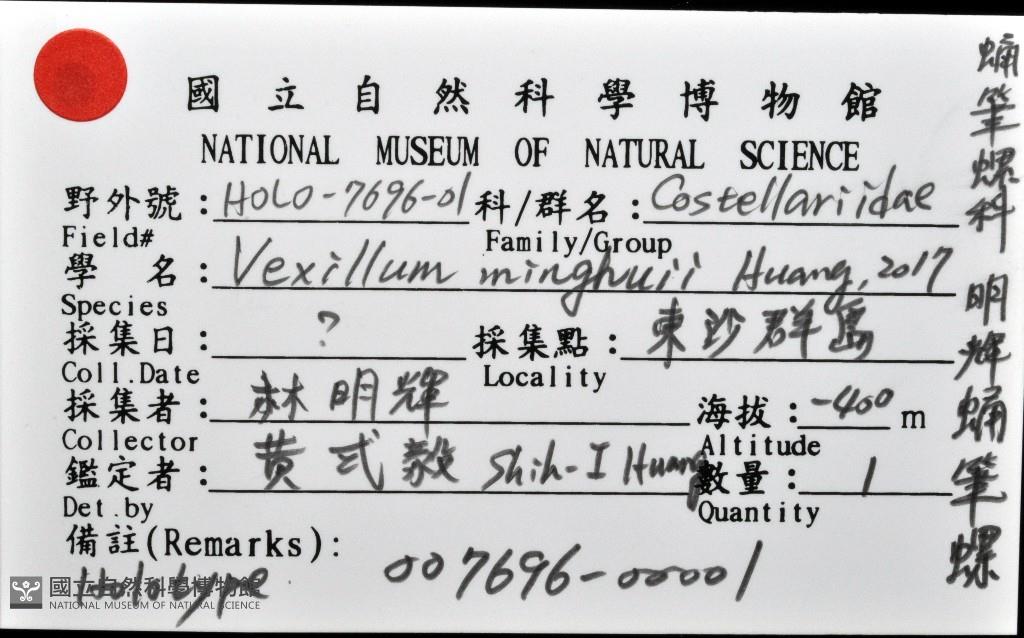 國立自然科學博物館
NATIONAL MUSEUM OF NATURAL SCIENCE
野外號：HOLO-7696-01 科/群名：Costellariidae
Field# Family/Group
學名：Vexillum minghuii Huang, 2017
Species
採集日：? 採集點：東沙群島
Coll.Date Locality
採集者：林明輝 海拔：-400 m
Collector Altitude
鑑定者：黄式毅 Shih-I Huang 數量：1
Det.by Quantity
備註(Remarks):
Holotype 007696-00001
蛹筆螺科 明輝蛹筆螺
國立自然科學博物館
NATIONAL MUSEUM OF NATURAL SCIENCE